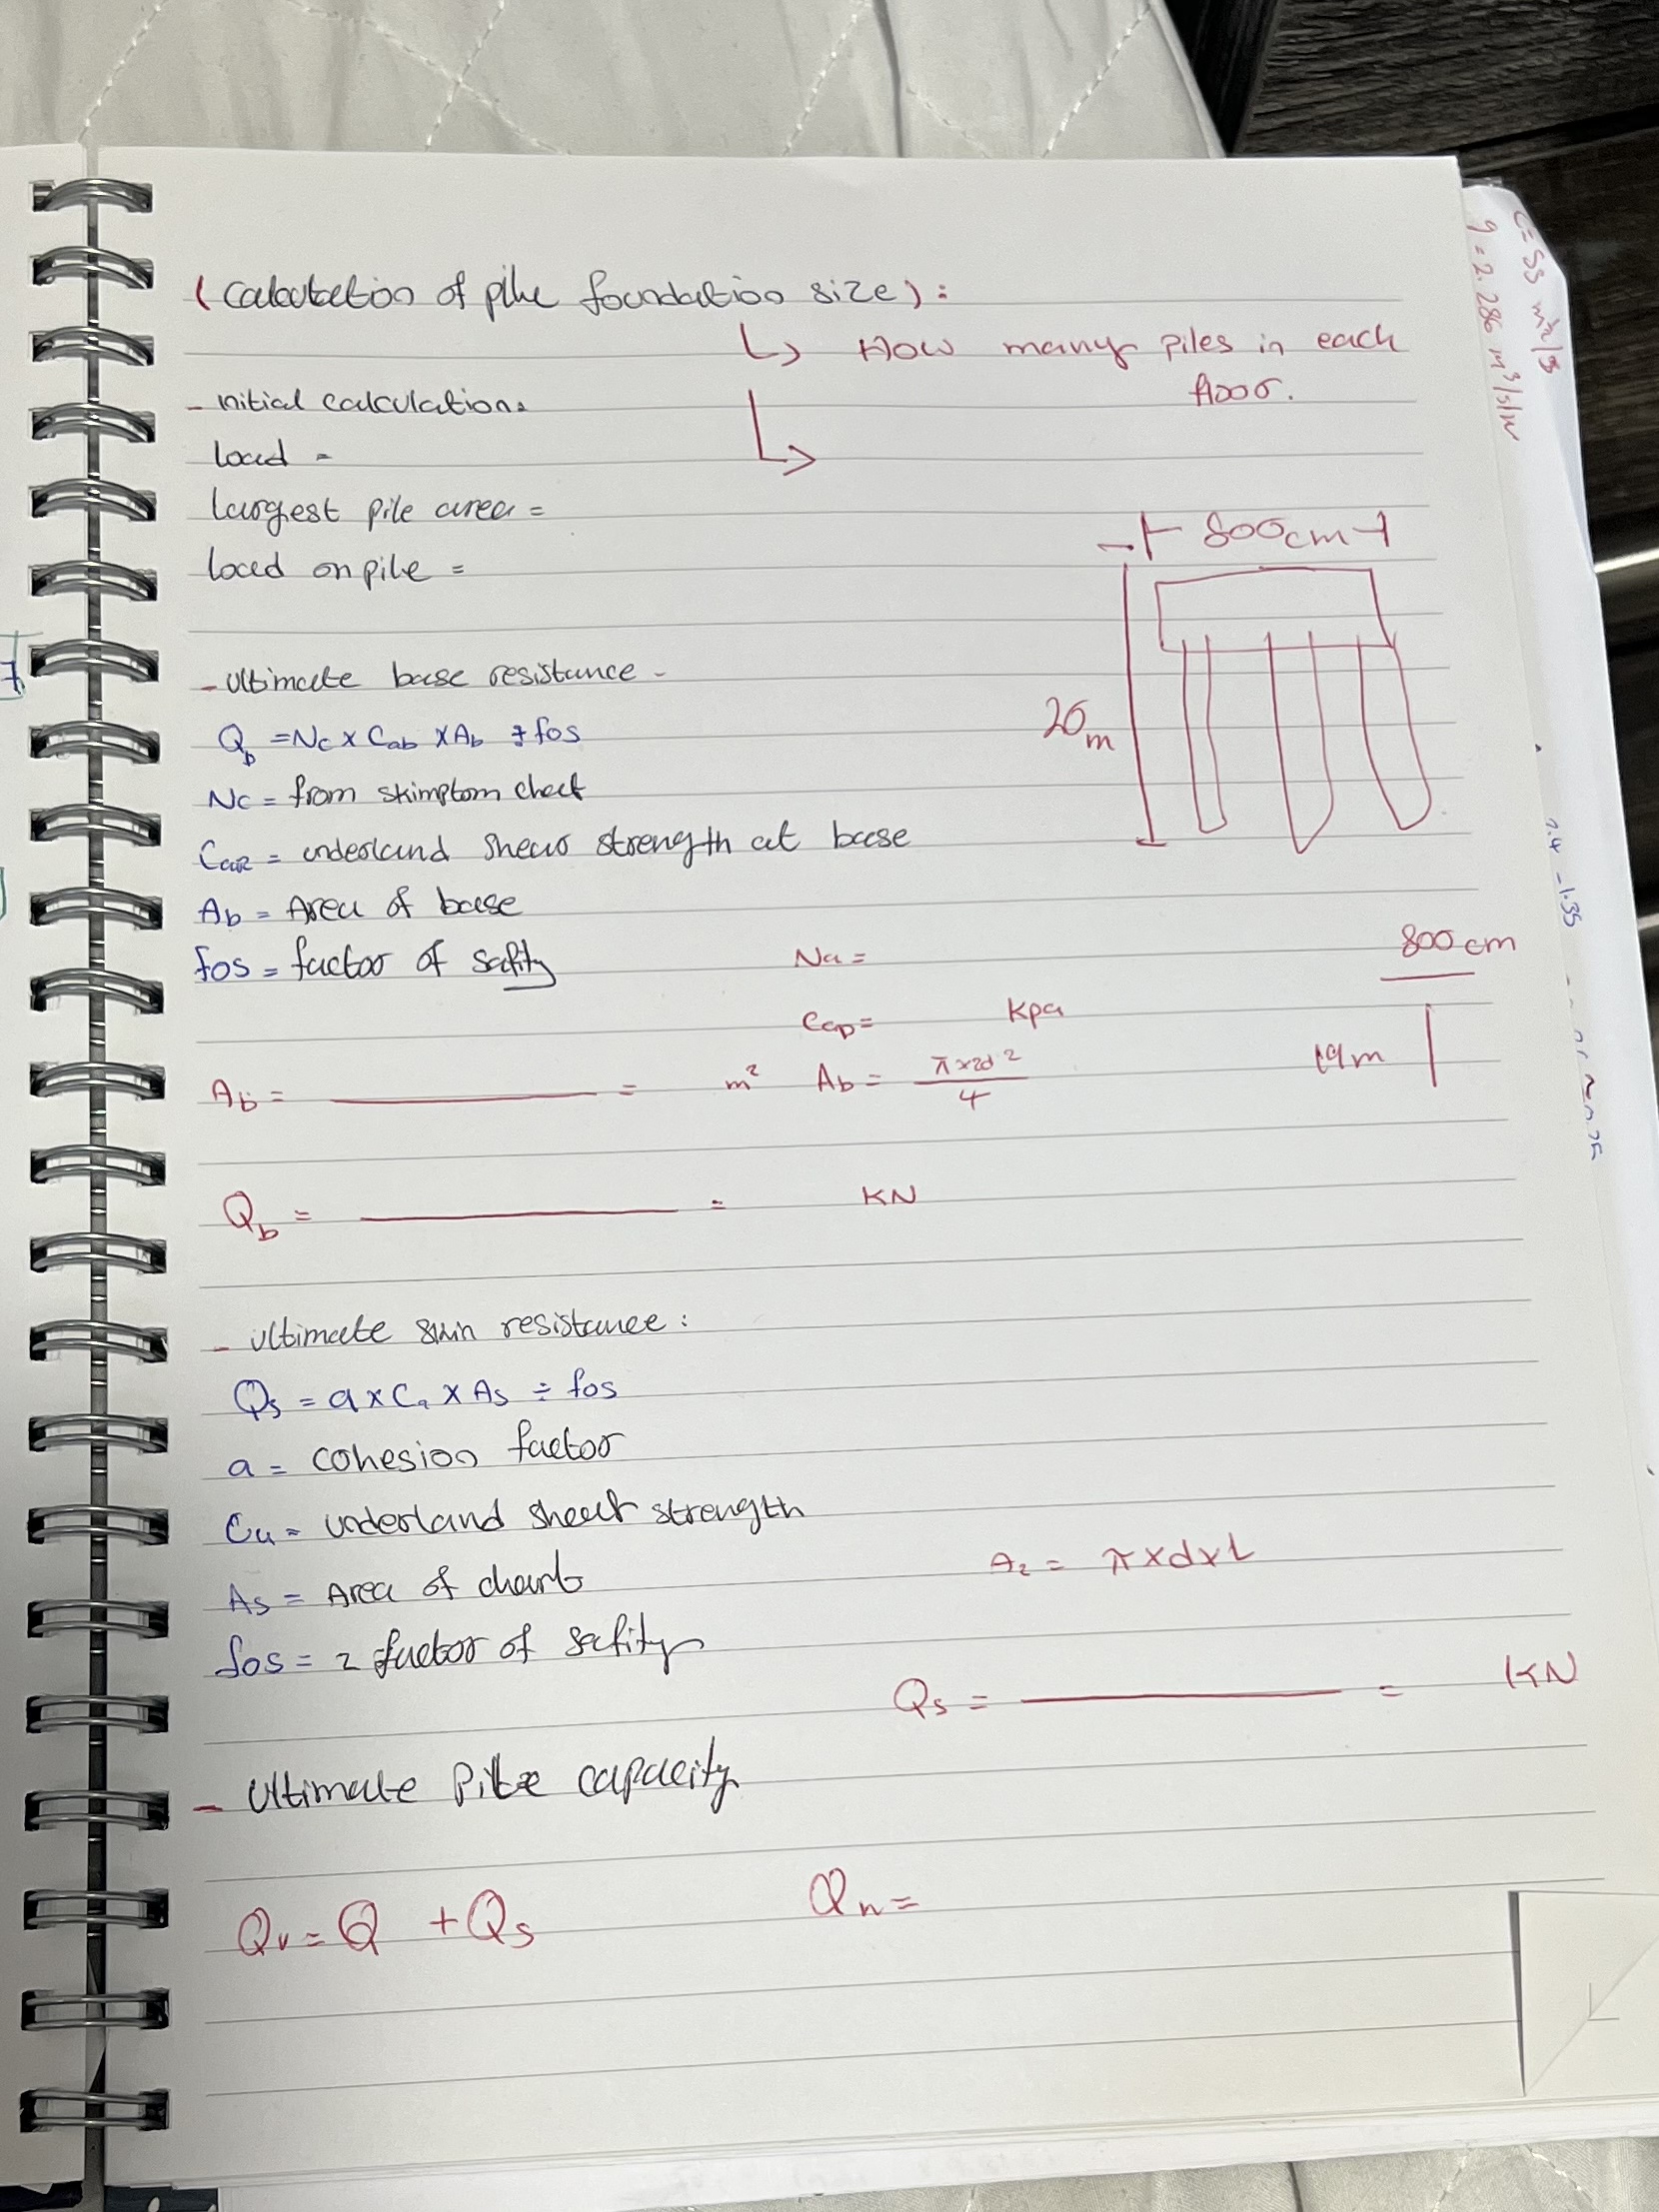 (Calculation of pile foundation size):
↳ How many piles in each floor.
- initial calculation.
load =
largest pile area =
load on pile =
⊢ 800cm ⊣
20 m
- Ultimate base resistance -
Qb = Nc x Cab x Ab ÷ fos
Nc = from skimptom chart
Cab = underland shear strength at base
Ab = Area of base
fos = factor of safity
Na =
800 cm
Cab = Kpa
19m
Ab = ——— = m² Ab = π x 2d² / 4
Qb = ——— = KN
- ultimate skin resistance:
Qs = a x Ca x As ÷ fos
a = cohesion factor
Cu = underland shear strength
As = Area of
fos = 2 factor of safity
A2 = π x d x L
Qs = ——— = KN
- Ultimate Pile capacity
Qu = Q + Qs
Qn =
q = 2.286 m³/s/m